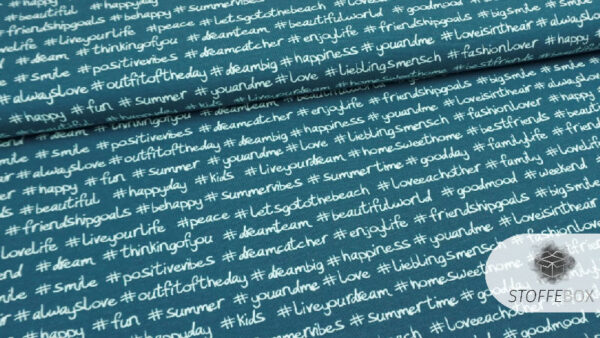 #friendshipgoals #behappy #summervibes #letsgotothebeach #beautifulworld #friendshipgoals #bigsmile
#liveyourlife #peace #dreamteam #dreamcatcher #enjoylife #youandme #loveisintheair
#dream #thinkingofyou #positivevibes #dreambig #happiness #liebli̇ngsmensch #fashionlover #happy
#smile #outfitoftheday #youandme #love
#alwayslove #fun #summer
#happy
#smile #positivevibes #dreamcatcher #enjoylife #friendshipgoals #bigsmile
#alwayslove #outfitoftheday #dreambig #happiness #youandme #loveisintheair
#happy #fun #summer #youandme #love #lieblingsmensch #fashionlover
#beautiful #happyday #kids #liveyourdream #homesweethome #bestfriends
#friendshipgoals #behappy #summervibes #summertime #goodday #familylife
#liveyourlife #peace #letsgotothebeach #loveeachother #family
#dream #thinkingofyou #dreamteam #beautifulworld #goodmood #weekend
#smile #positivevibes #dreamcatcher #enjoylife #friendshipgoals #bigsmile
#alwayslove #outfitoftheday #dreambig #happiness #youandme #loveisintheair
#happy #fun #summer #youandme #love #lieblingsmensch
#happyday #kids #liveyourdream #homesweethome
#summervibes #summertime #goodday
#loveeachother
#goodmood
STOFFEBOX